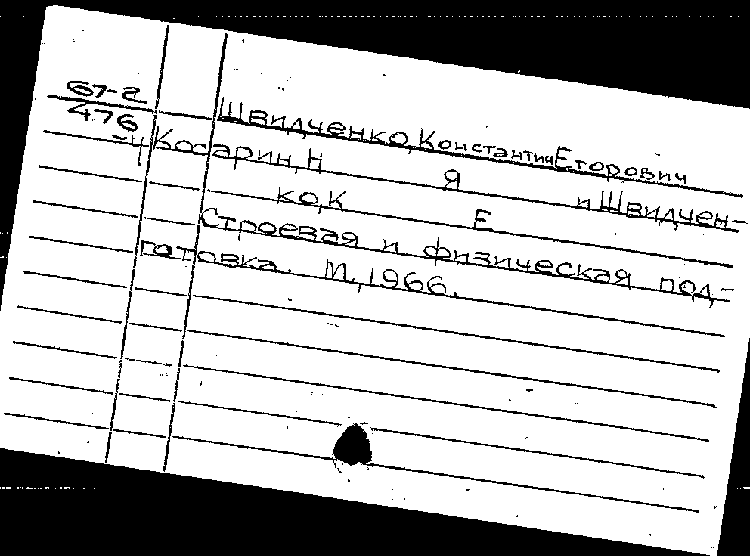 67-2
476
Швидченко, Константин Егорович
Косарин, Н Я и Швидчен-
ко, К Е
Строевая и физическая под-
готовка. М., 1966.